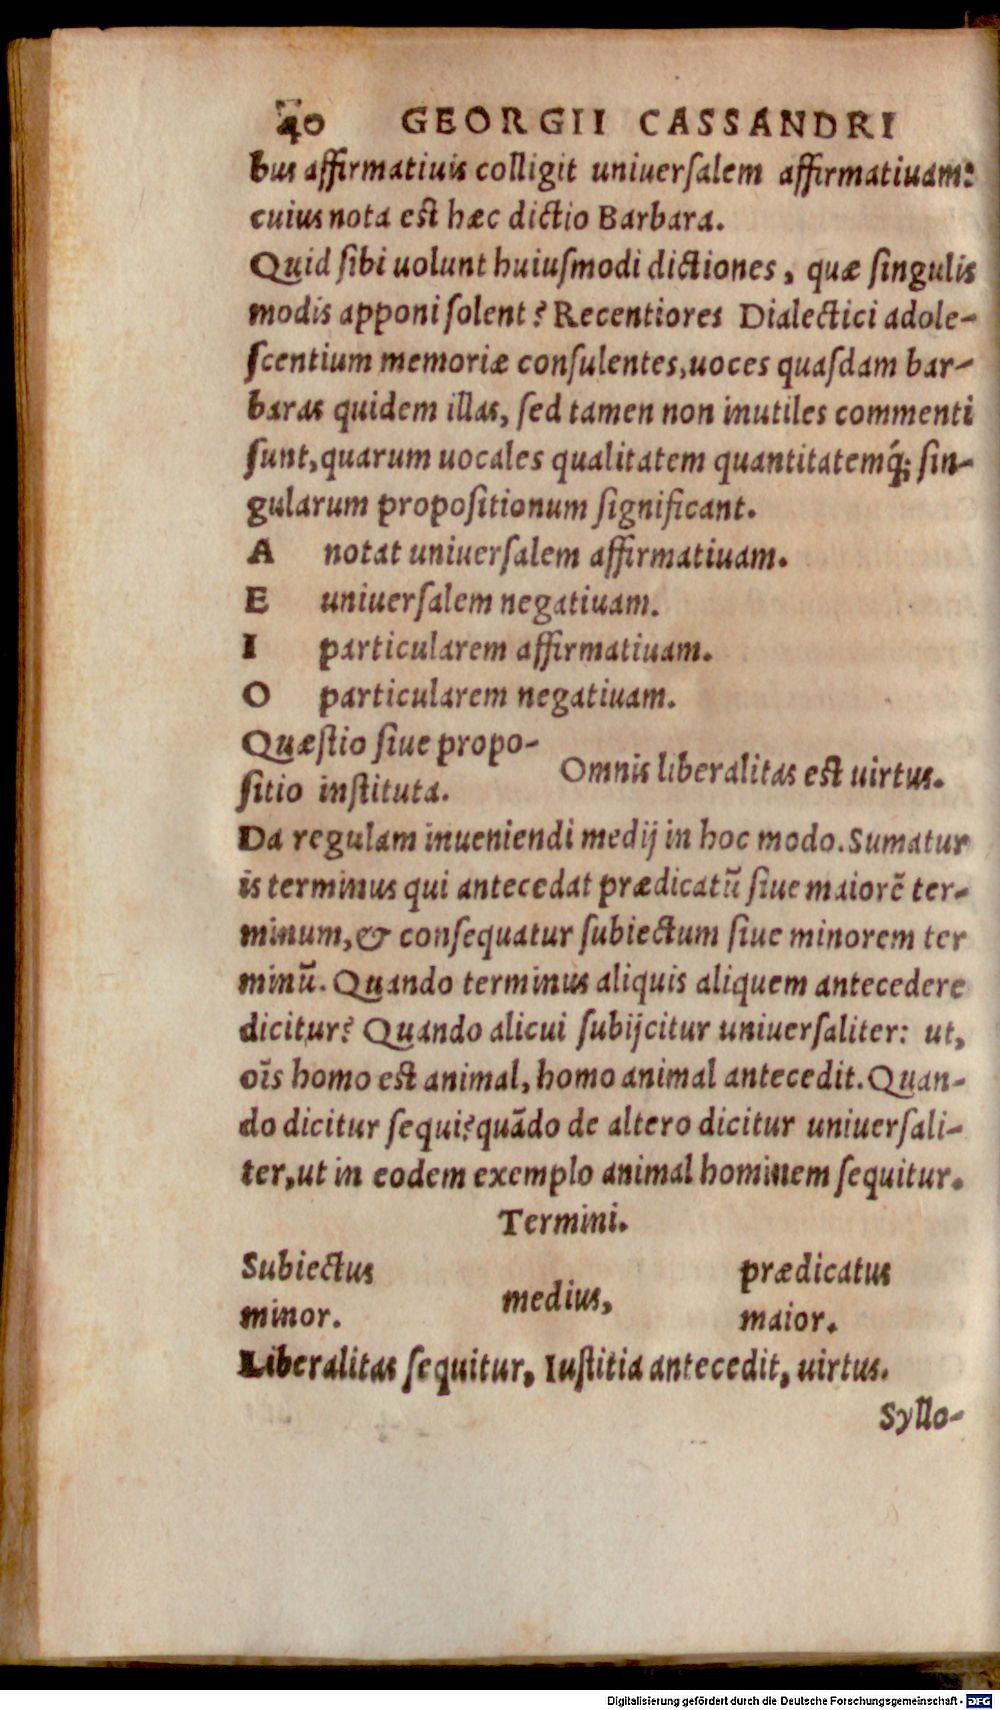 40 GEORGII CASSANDRI
bus affirmatiuis colligit uniuerſalem affirmatiuam:
cuius nota est hæc dictio Barbara.
Quid ſibi uolunt huiuſmodi dictiones, quæ ſingulis
modis apponi ſolent? Recentiores Dialectici adole-
ſcentium memoriæ conſulentes, uoces quaſdam bar-
baras quidem illas, ſed tamen non inutiles commenti
ſunt, quarum uocales qualitatem quantitatemq́; ſin-
gularum propoſitionum ſignificant.
A notat uniuerſalem affirmatiuam.
E uniuerſalem negatiuam.
I particularem affirmatiuam.
O particularem negatiuam.
Quæſtio ſiue propo-
ſitio inſtituta.
Omnis liberalitas est uirtus.
Da regulam inueniendi medij in hoc modo. Sumatur
is terminus qui antecedat prædicatũ ſiue maiorẽ ter-
minum, & conſequatur ſubiectum ſiue minorem ter
minũ. Quando terminus aliquis aliquem antecedere
dicitur? Quando alicui ſubijcitur uniuerſaliter: ut,
oĩs homo est animal, homo animal antecedit. Quan-
do dicitur ſequi? quãdo de altero dicitur uniuerſali-
ter, ut in eodem exemplo animal hominem ſequitur.
Termini.
Subiectus
minor.
medius,
prædicatus
maior.
Liberalitas ſequitur, Iuſtitia antecedit, uirtus.
Syllo-
Digitalisierung gefördert durch die Deutsche Forschungsgemeinschaft - DFG